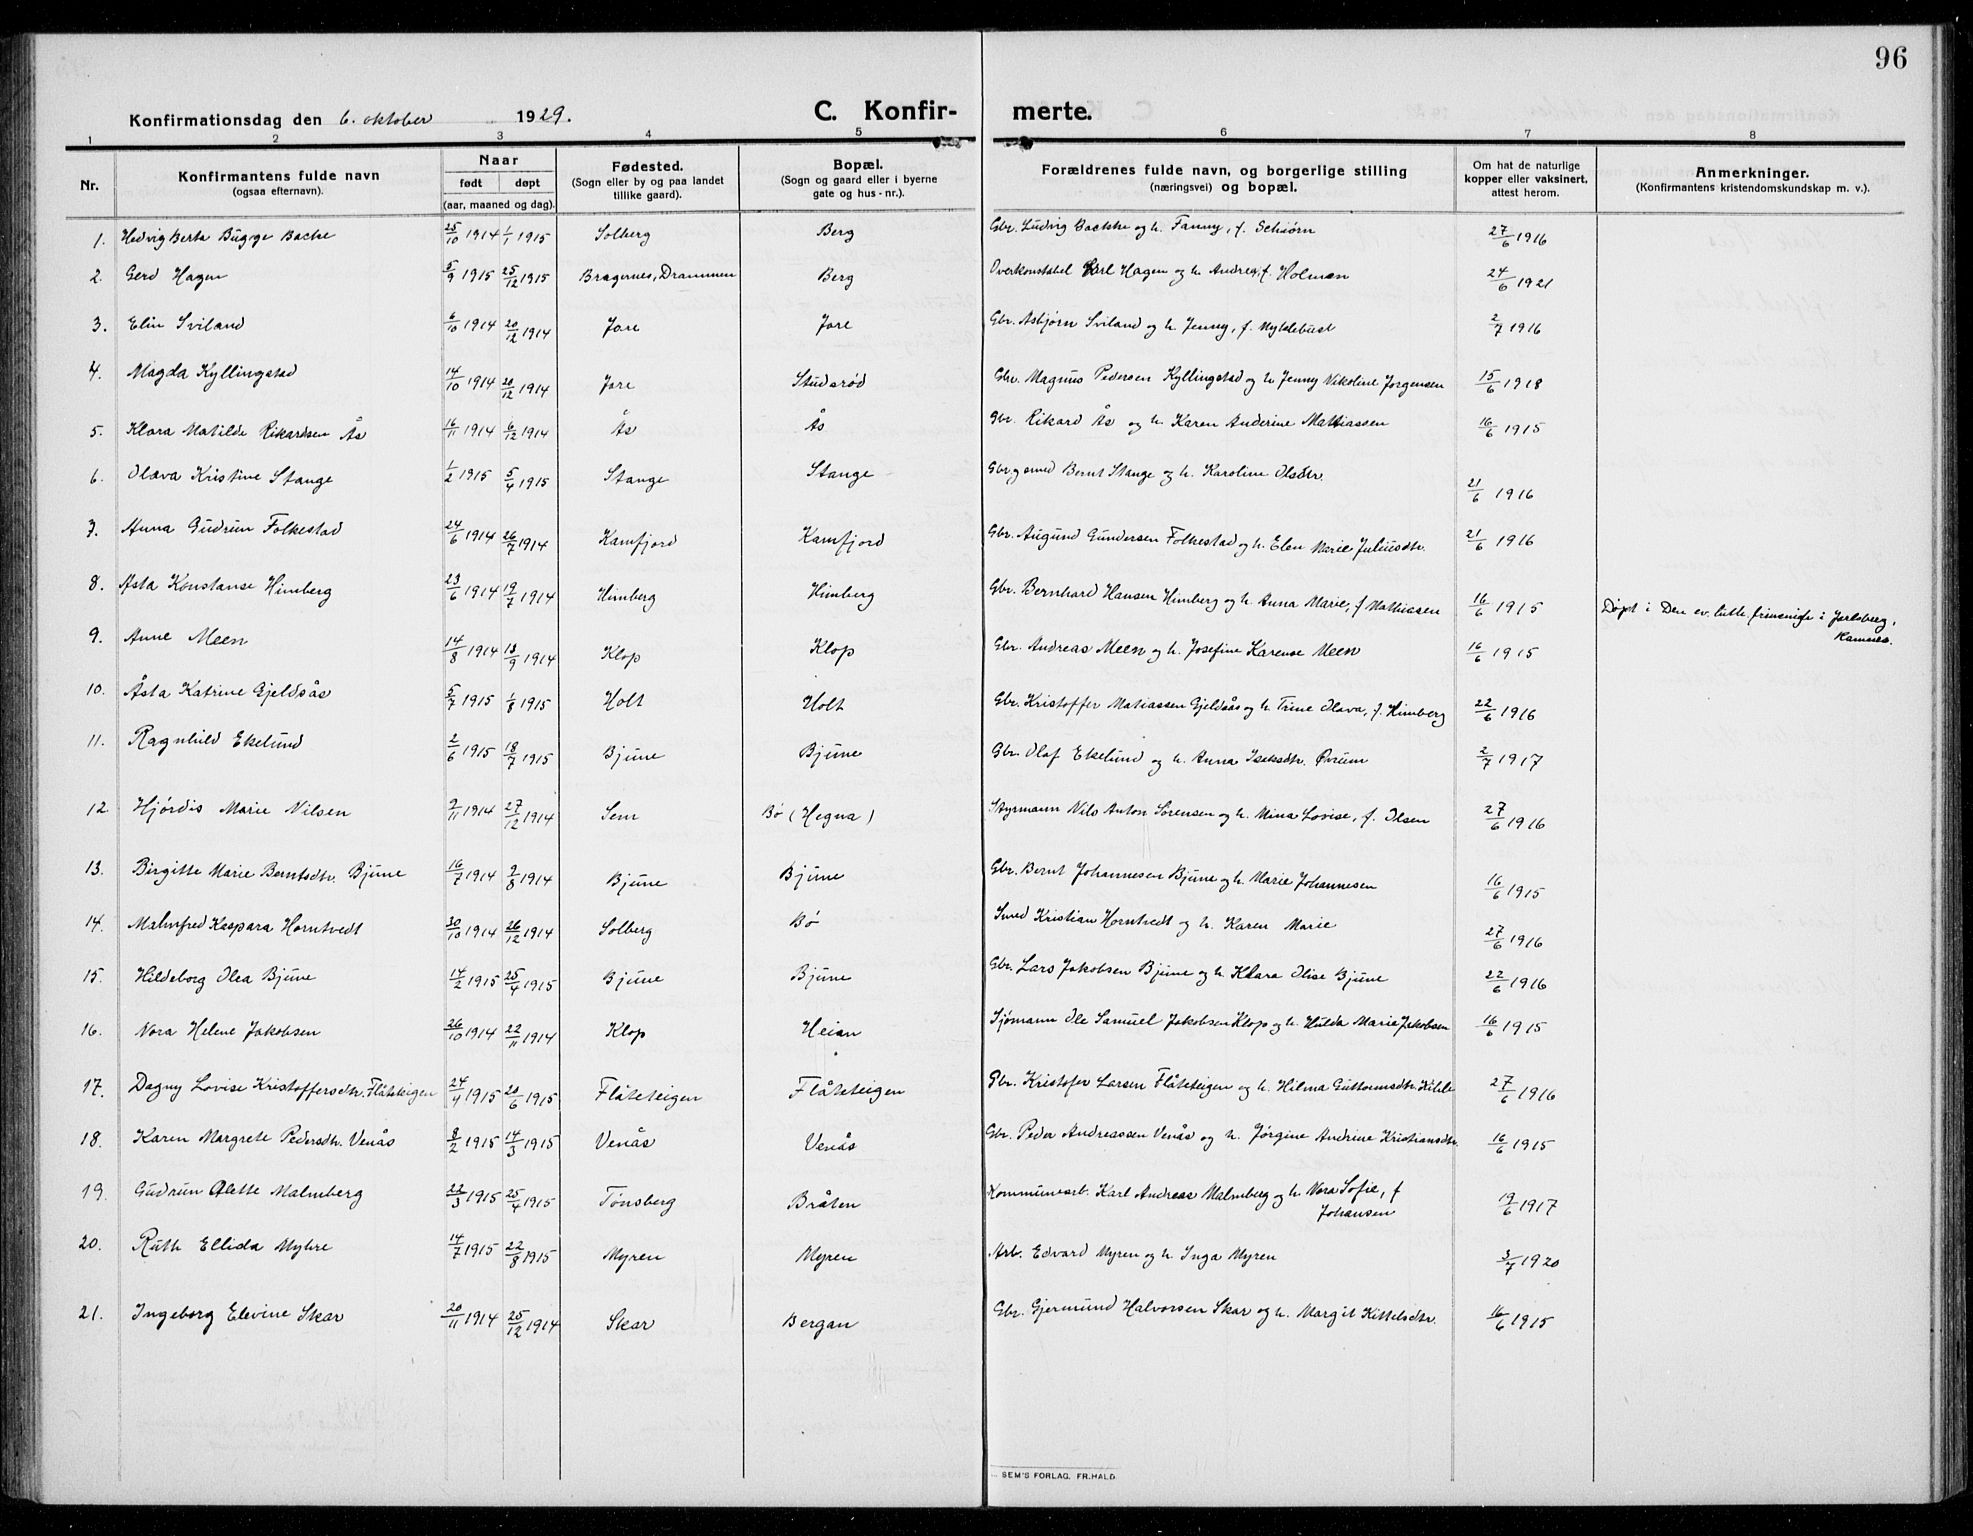 96
Konfirmationsdag den 6. oktober 1929. C. Konfir- merte.
1 2 3 4 5 6 7 8
Nr. Konfirmantens fulde navn (ogsaa efternavn). Naar født døpt (aar, maaned og dag). Fødested. (Sogn eller by og paa landet tillike gaard). Bopæl. (Sogn og gaard eller i byerne gate og hus-nr.). Forældrenes fulde navn, og borgerlige stilling (næringsvei) og bopæl. Om hat de naturlige kopper eller vaksinert, attest herom. Anmerkninger. (Konfirmantens kristendomskundskap m. v.).
1. Hedvig Berta Bugge Backe 25/10 1914 1/1 1915 Solberg Berg Gbr. Ludvig Backke og h. Fanny, f. Schiørn 27/6 1916
2. Gerd Hagen 5/9 1915 25/12 1915 Bragernes, Drammen Berg Overkonstabel Karl Hagen og h. Andrea, f. Holmen 24/6 1921
3. Elin Sviland 6/10 1914 20/12 1914 Jare Jare Gbr. Asbjørn Sviland og h. Jenny, f. Myldebust 2/7 1916
4. Magda Kyllingstad 14/10 1914 20/12 1914 Jare Studsrød Gbr. Magnus Pedersen Kyllingstad og h. Jenny Nikoline Jørgensen 15/6 1918
5. Klara Matilde Rikardsen Ås 16/11 1914 6/12 1914 Ås Ås Gbr. Rikard Ås og h. Karen Anderine Mathiassen 16/6 1915
6. Olava Kristine Stange 1/2 1915 5/4 1915 Stange Stange Gbr. g smed Bernt Stange og h. Karoline Olsdtr. 21/6 1916
7. Anna Gudrun Folkestad 24/6 1914 26/7 1914 Kamfjord Kamfjord Gbr. Augund Gundersen Folkestad og h. Elen Marie Juliusdtr. 21/6 1916
8. Asta Konstanse Himberg 23/6 1914 19/7 1914 Himberg Himberg Gbr. Bernhard Hansen Himberg og h. Anna Marie, f. Mathiasen 16/6 1915 Døpt i Den ev. luth. frimenigh i Jarlsberg,
9. Anne Meen 14/8 1914 13/9 1914 Klop Klop Gbr. Andreas Meen og h. Josefine Karense Meen 16/6 1915
10. Åsta Katrine Gjeldsås 5/7 1915 1/8 1915 Holt Holt Gbr. Kristoffer Matiassen Gjeldsås og h. Trine Olava, f. Himberg 22/6 1916
11. Ragnhild Ekelund 2/6 1915 18/7 1915 Bjune Bjune Gbr. Olaf Ekelund og h. Anna Isaksdtr. Øvrum 2/7 1917
12. Hjørdis Marie Nilsen 2/11 1914 27/12 1914 Sem Bø (Hegna) Styrmann Nils Anton Sørensen og h. Mina Lovise, f. Olsen 27/6 1916
13. Birgitte Marie Berntsdtr. Bjune 16/7 1914 9/8 1914 Bjune Bjune Gbr. Bernt Johannesen Bjune og h. Marie Johannesen 16/6 1915
14. Malmfred Kaspara Horntvedt 30/10 1914 26/12 1914 Solberg Bø Smed Kristian Horntvedt og h. Karen Marie 27/6 1916
15. Hildeborg Olea Bjune 14/2 1915 25/4 1915 Bjune Bjune Gbr. Lars Jakobsen Bjune og h. Klara Olise Bjune 22/6 1916
16. Nora Helene Jakobsen 26/10 1914 22/11 1914 Klop Heian Sjømann Ole Samuel Jakobsen Klop og h. Hulda Marie Jakobsen 16/6 1915
17. Dagny Lovise Kristoffersdtr. Flåteteigen 24/4 1915 20/6 1915 Flåteteigen Flåteteigen Gbr. Kristofer Larsen Flåteteigen og h. Hilma Guttormsdtr. 27/6 1916
18. Karen Margrete Pedersdtr. Venås 8/2 1915 14/3 1915 Venås Venås Gbr. Peder Andreassen Venås og h. Jørgine Andrine Kristiansdtr. 16/6 1915
19. Gudrun Olette Malmberg 22/3 1915 25/4 1915 Tønsberg Bråten Kommunearb. Karl Andreas Malmberg og h. Nora Sofie, f Johansen 19/6 1917
20. Ruth Ellida Myhre 14/7 1915 22/8 1915 Myren Myren Arb. Edvard Myren og h. Inga Myren 3/7 1920
21. Ingeborg Elevine Skar 20/11 1914 25/12 1914 Skar Bergan Gbr. Gjermund Halvorsen Skar og h. Margit Kittelsdtr. 16/6 1915
SEM'S FORLAG. FR. HALD.